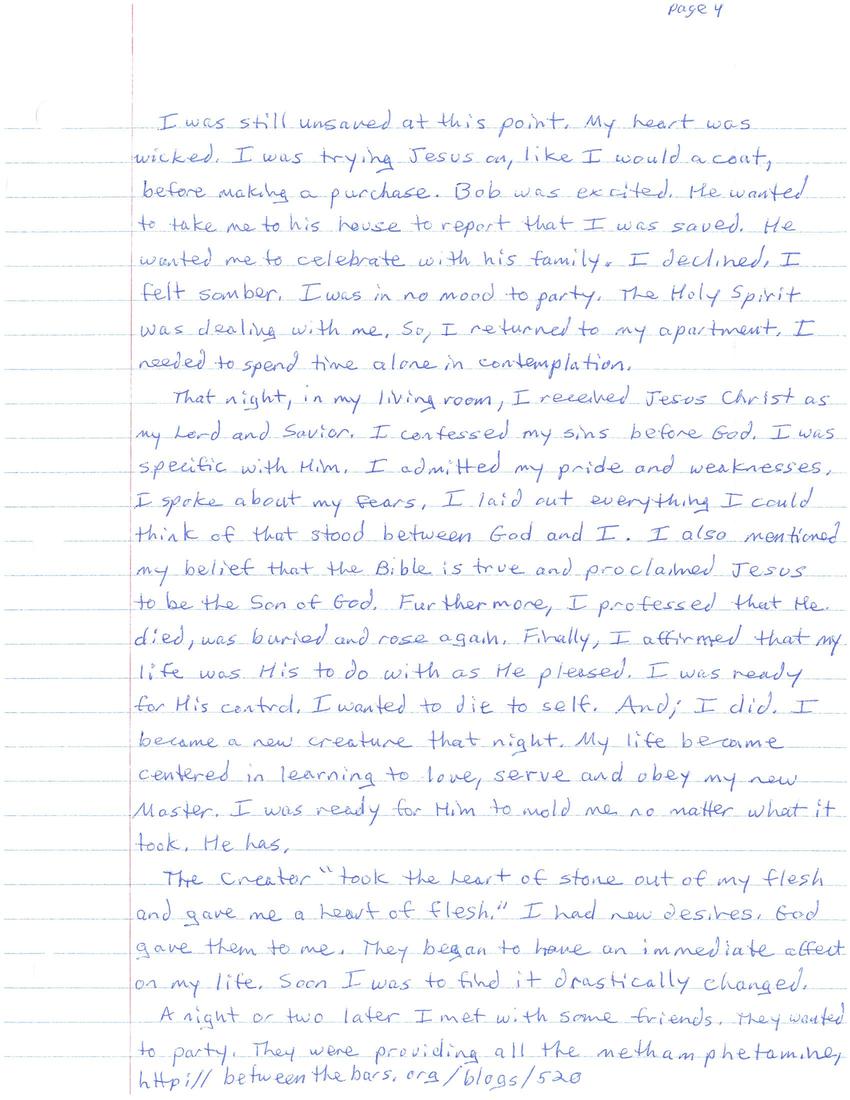 page 4
I was still unsaved at this point. My heart was
wicked. I was trying Jesus on, like I would a coat,
before making a purchase. Bob was excited. He wanted
to take me to his house to report that I was saved. He
wanted me to celebrate with his family. I declined. I
felt somber. I was in no mood to party. The Holy Spirit
was dealing with me. So, I returned to my apartment. I
needed to spend time alone in contemplation.
That night, in my living room, I received Jesus Christ as
my Lord and Savior. I confessed my sins before God. I was
specific with Him. I admitted my pride and weaknesses.
I spoke about my fears. I laid out everything I could
think of that stood between God and I. I also mentioned
my belief that the Bible is true and proclaimed Jesus
to be the Son of God. Furthermore, I professed that He
died, was buried and rose again. Finally, I affirmed that my
life was His to do with as He pleased. I was ready
for His control. I wanted to die to self. And; I did. I
became a new creature that night. My life became
centered in learning to love, serve and obey my new
Master. I was ready for Him to mold me no matter what it
took. He has.
The Creator "took the heart of stone out of my flesh
and gave me a heart of flesh." I had new desires. God
gave them to me. They began to have an immediate affect
on my life. Soon I was to find it drastically changed.
A night or two later I met with some friends. They wanted
to party. They were providing all the methamphetamine,
http://betweenthebars.org/blogs/520